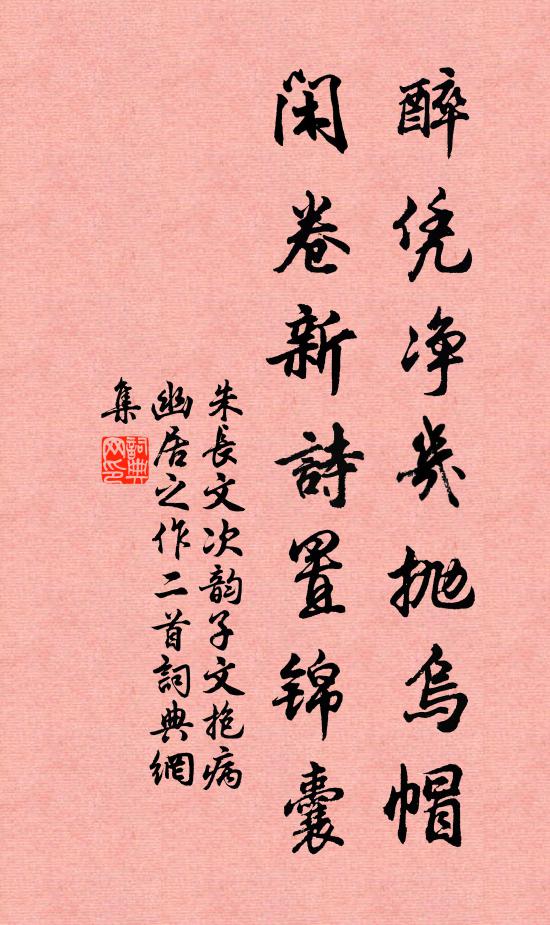 醉凭净几抛乌帽
闲卷新詩置锦囊
朱長文次韵子文抱病
幽居之作二首詞典網
集
詞典網印